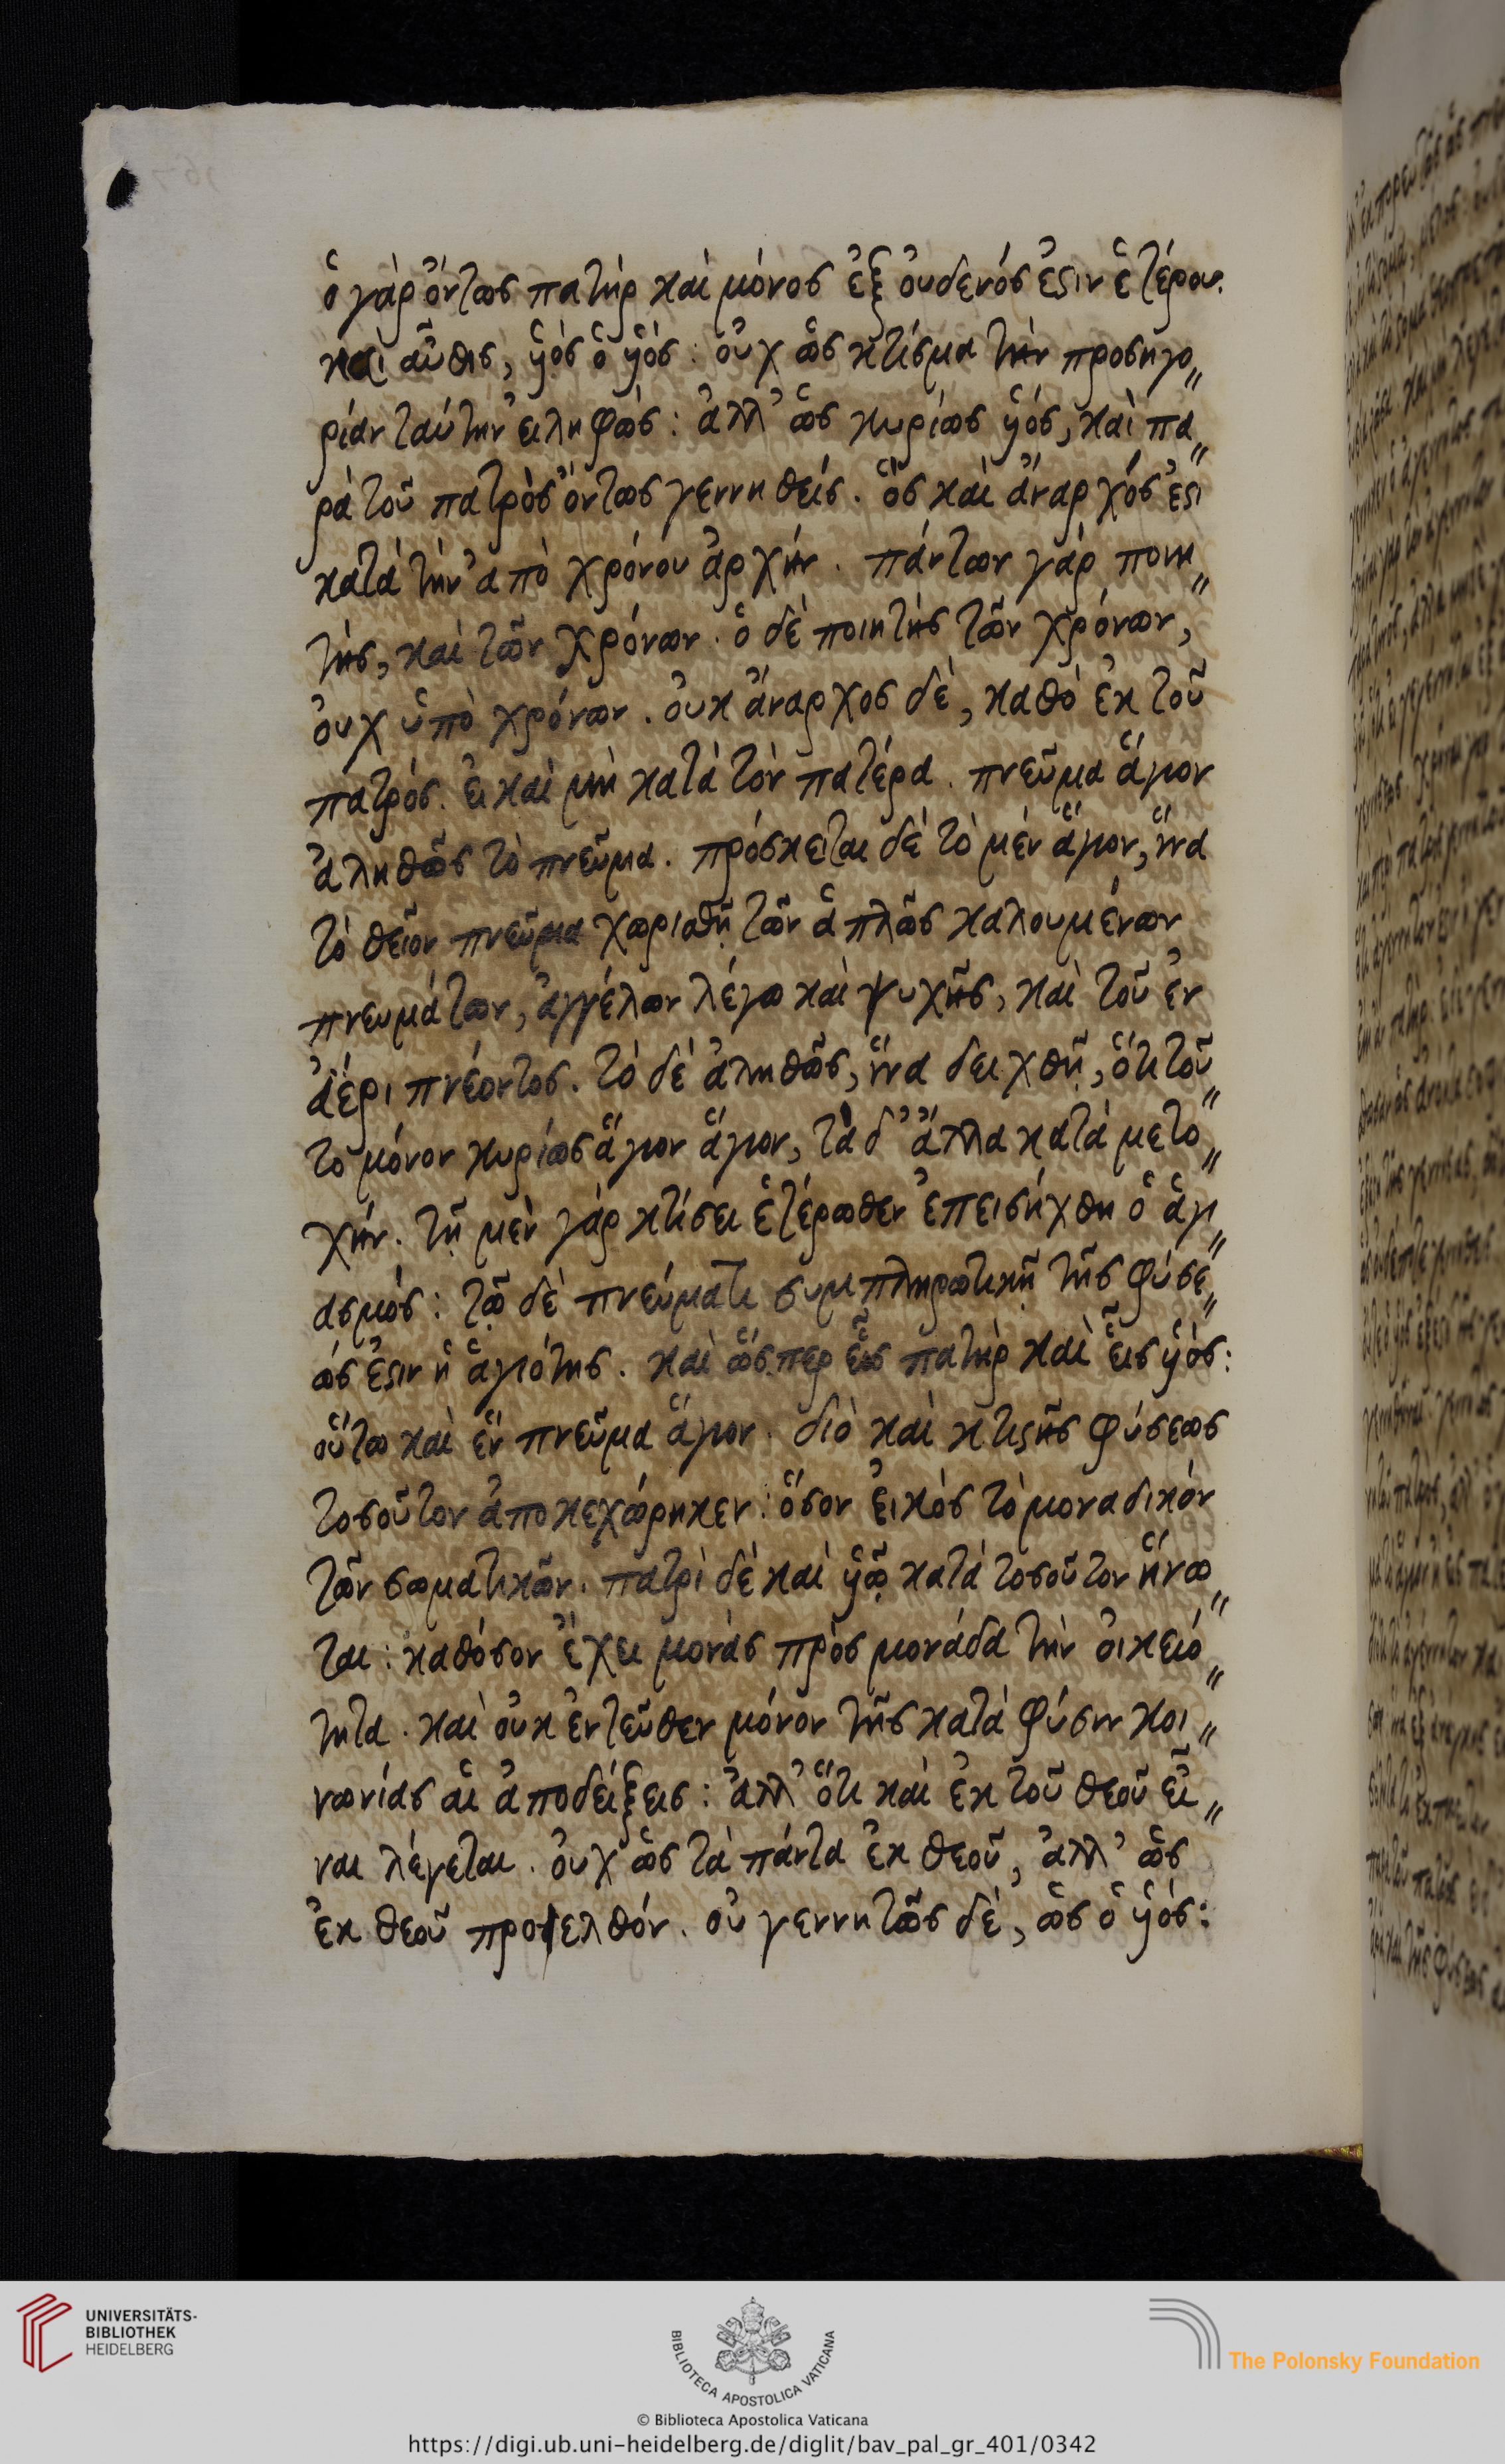 ὁ γὰρ ὄντως πατὴρ καὶ μόνος ἐξ οὐδενός ἐστιν ἑτέρου.
καὶ αὖθις, ὑιὸς ὁ ὑιὸς: οὐχ ὡς κτίσμα τὴν προσηγο„
ρίαν ταύτην ἐιληφὼς: ἀλλ' ὡς κυρίως ὑιός, καὶ πα„
ρὰ τοῦ πατρὸς ὄντως γεννηθείς. ὃς καὶ ἄναρχός ἐστι
κατὰ τὴν ἀπὸ χρόνου ἀρχήν. πάντων γάρ ποιη„
τὴς, καὶ τῶν χρόνων. ὁ δὲ ποιητὴς τῶν χρόνων,
ὀυχ ὑπὸ χρόνων. ὀυκ ἄναρχος δὲ, καθὸ ἐκ τοῦ
πατρός. ἐι καὶ μὴ κατὰ τὸν πατέρα. πνεῦμα ἅγιον
ἀληθῶς τὸ πνεῦμα. πρόσκειται δὲ τὸ μὲν ἅγιον, ἵνα
τὸ θεῖον πνεῦμα χωρισθῇ τῶν ἁπλῶς καλουμένων
πνευμάτων, ἀγγέλων λέγω καὶ ψυχῆς, καὶ τοῦ ἐν
ἀέρι πνέοντος. τὸ δὲ ἀληθῶς, ἵνα δειχθῇ, ὅτι τοῦ„
το μόνον κυρίως ἅγιον ἅγιον, τὰ δ' ἄλλα κατὰ μετο„
χήν. τῇ μὲν γὰρ κτίσει ἑτέρωθεν ἐπεισήχθη ὁ ἁγι„
ασμός: τῷ δὲ πνεύματι συμπληρωτικὴ τῆς φύσε„
ώς ἐστιν ἡ ἁγιότης. καὶ ὥσπερ εἷς πατὴρ καὶ εἷς ὑιὸς:
οὕτω καὶ ἓν πνεῦμα ἅγιον. διὸ καὶ κτιστῆς φύσεως
τοσοῦτον ἀποκεχώρηκεν: ὅσον ἐικὸς τὸ μοναδικὸν
τῶν σωματικῶν. πατρὶ δὲ καὶ ὑιῷ κατὰ τοσοῦτον ἥνω„
ται: καθόσον ἔχει μονὰς πρὸς μονάδα τὴν ὀικειό„
τητα. καὶ ὀυκ ἐντεῦθεν μόνον τῆς κατὰ φύσιν κοι„
νωνίας ἁι ἀποδείξεις: ἀλλ' ὅτι καὶ ἐκ τοῦ θεοῦ εἶ„
ναι λέγεται. ὀυχ ὡς τὰ πάντα ἐκ θεοῦ, ἀλλ' ὡς
ἐκ θεοῦ προελθόν. οὐ γεννητῶς δὲ, ὡς ὁ ὑιὸς:
UNIVERSITÄTS-
BIBLIOTHEK
HEIDELBERG
BIBLIOTECA APOSTOLICA VATICANA
The Polonsky Foundation
© Biblioteca Apostolica Vaticana
https://digi.ub.uni-heidelberg.de/diglit/bav_pal_gr_401/0342